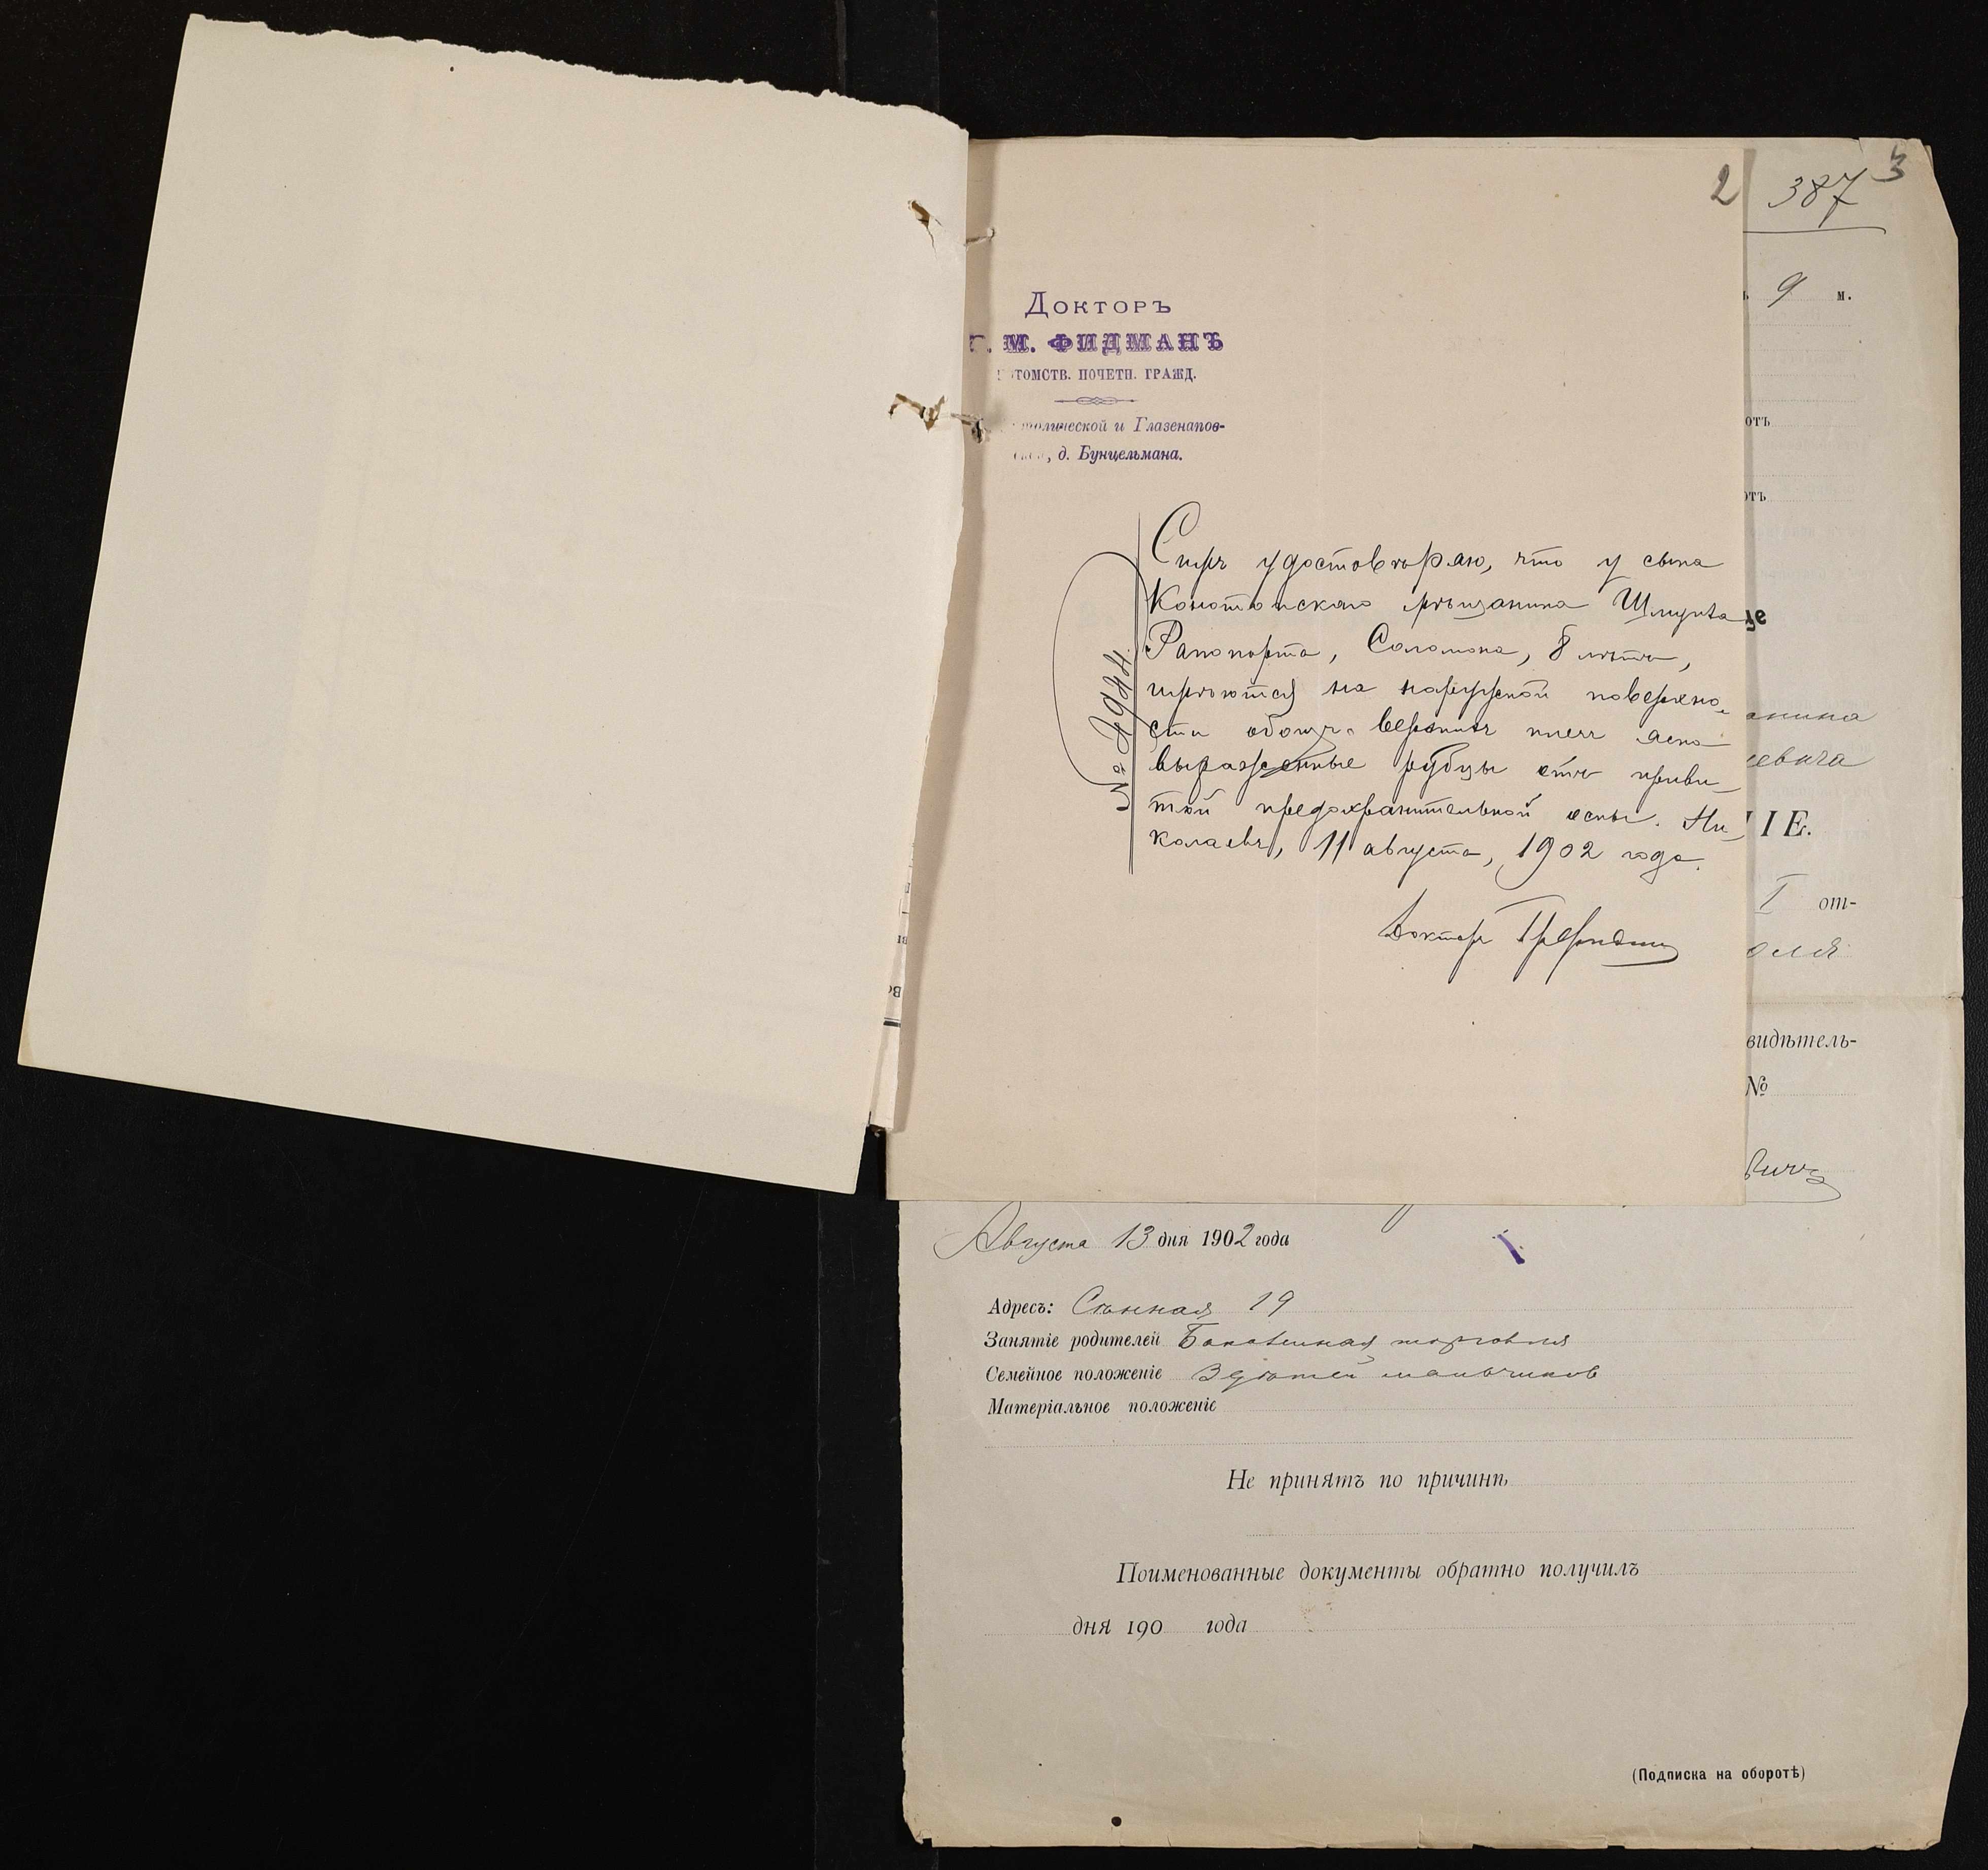 2
387
3
9 м.
Докторъ
Г. М. ФИДМАНЪ
ПОТОМСТВ. ПОЧЕТН. ГРАЖД.
толической и Глазенапов-
ской, д. Бунцельмана.
отъ
отъ
№ 2944.
Симъ удостовѣряю, что у сына
Конотопскаго мѣщанина Шмуила
Рапопорта, Соломона, 8 лѣтъ,
имѣются на наружной поверхно-
сти обоихъ верхнихъ плечъ ясно
выраженные рубцы отъ приви-
той предохранительной оспы. Ни-
колаевъ, 11 августа, 1902 года.
Докторъ
це
анина
евича
ІЕ.
I от-
оля
видѣтель-
№
вичъ
Августа 13 дня 1902 года
Адресъ: Сѣнная 19
Занятіе родителей Бакалейная торговля
Семейное положеніе 3 дѣтей мальчиков
Матеріальное положеніе
Не принятъ по причинѣ
Поименованные документы обратно получилъ
дня 190 года
(Подписка на оборотѣ)